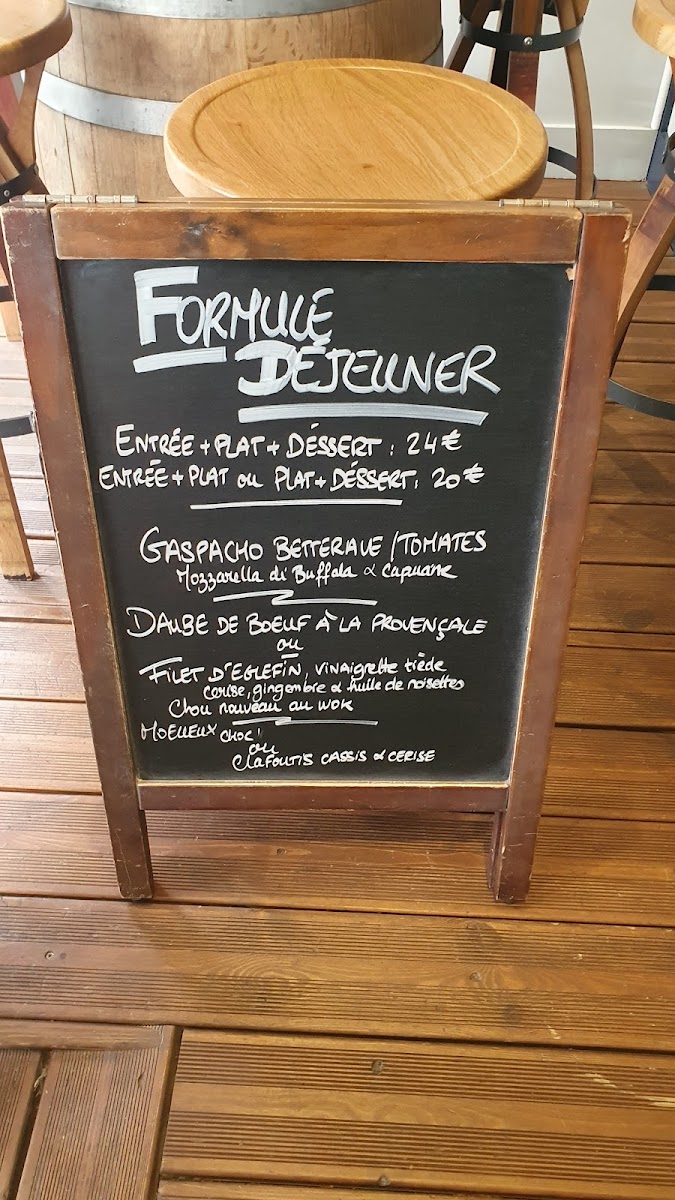 FORMULE
DÉJEUNER
ENTRÉE + PLAT + DÉSSERT : 24€
ENTRÉE + PLAT ou PLAT + DÉSSERT : 20€
GASPACHO BETTERAVE / TOMATES
Mozzarella di Buffala & Capuane
DAUBE DE BOEUF À LA PROVENÇALE
ou
FILET D'EGLEFIN, vinaigrette tiède
cerise, gingembre & huile de noisettes
Chou nouveau au wok
MOELLEUX CHOC!
ou
CLAFOUTIS CASSIS & CERISE